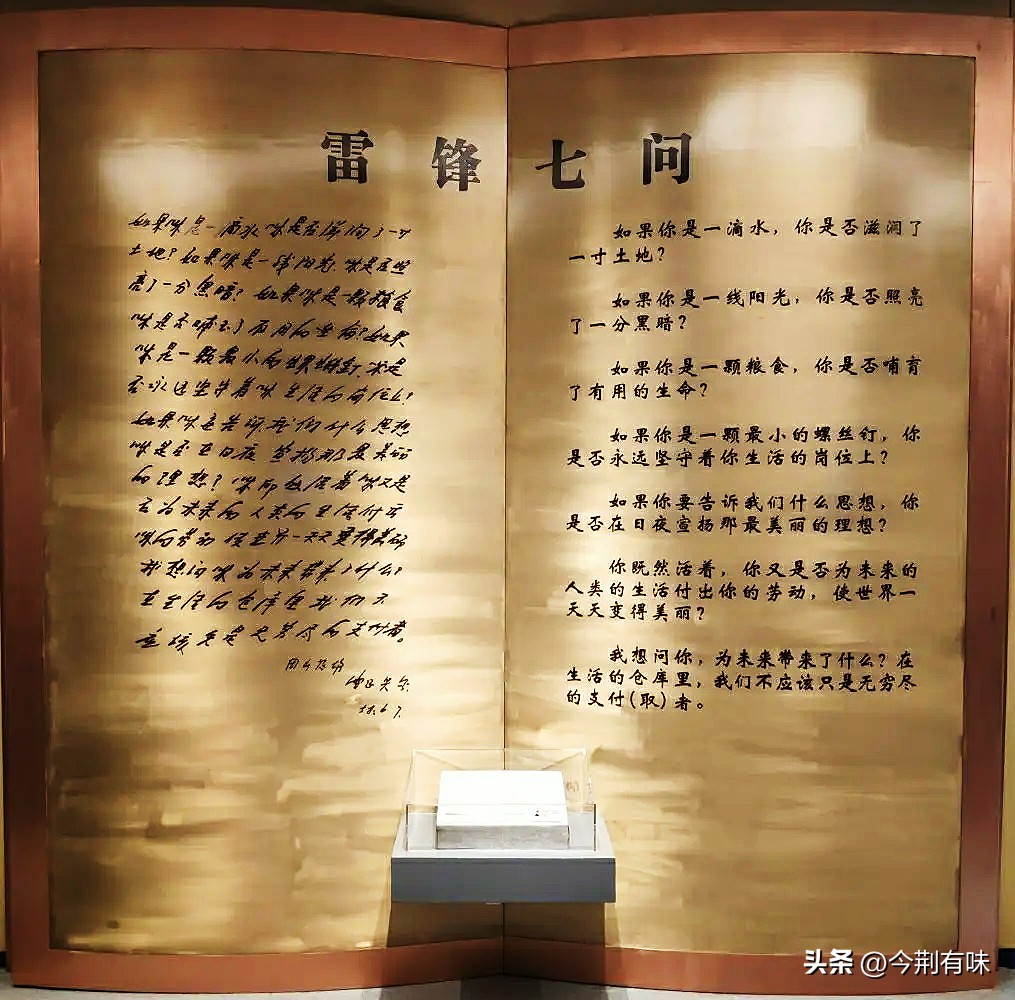 雷锋七问
如果你是一滴水你是否滋润了一寸
土地？如果你是一线阳光，你是否照
亮了一分黑暗？如果你是一颗粮食
你是否哺育了有用的生命？如果
你是一颗最小的螺丝钉，你是
否永远坚守着你生活的岗位上？
如果你要告诉我们什么思想
你是否在日夜宣扬那最美丽
的理想？你既然活着你又是
否为未来的人类的生活付出
你的劳动使世界一天天变得美丽
我想问你为未来带来了什么？
在生活的仓库里我们不
应该只是无穷尽的支付者。
58.6.7.
如果你是一滴水，你是否滋润了
一寸土地？
如果你是一线阳光，你是否照亮
了一分黑暗？
如果你是一颗粮食，你是否哺育
了有用的生命？
如果你是一颗最小的螺丝钉，你
是否永远坚守着你生活的岗位上？
如果你要告诉我们什么思想，你
是否在日夜宣扬那最美丽的理想？
你既然活着，你又是否为未来的
人类的生活付出你的劳动，使世界一
天天变得美丽？
我想问你，为未来带来了什么？在
生活的仓库里，我们不应该只是无穷尽
的支付(取)者。
头条 @今荆有味